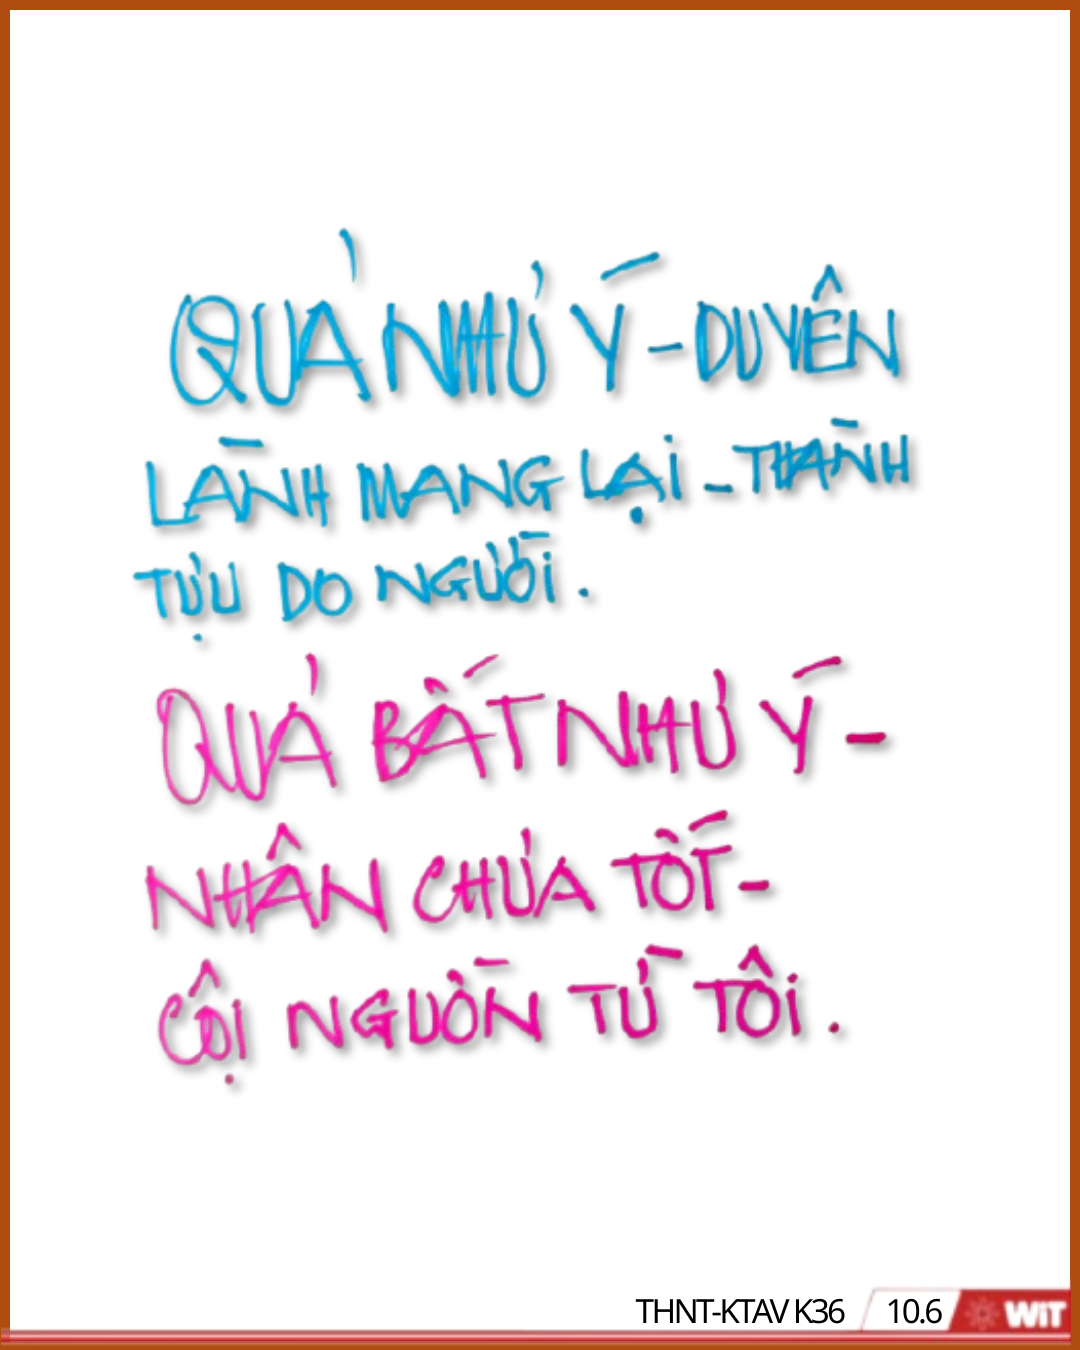 QUẢ NHƯ Ý - DUYÊN
LÀNH MANG LẠI - THÀNH
TỰU DO NGƯỜI.
QUẢ BẤT NHƯ Ý -
NHÂN CHƯA TỐT -
CỘI NGUỒN TỪ TÔI.
THNT-KTAV K36 10.6 WiT